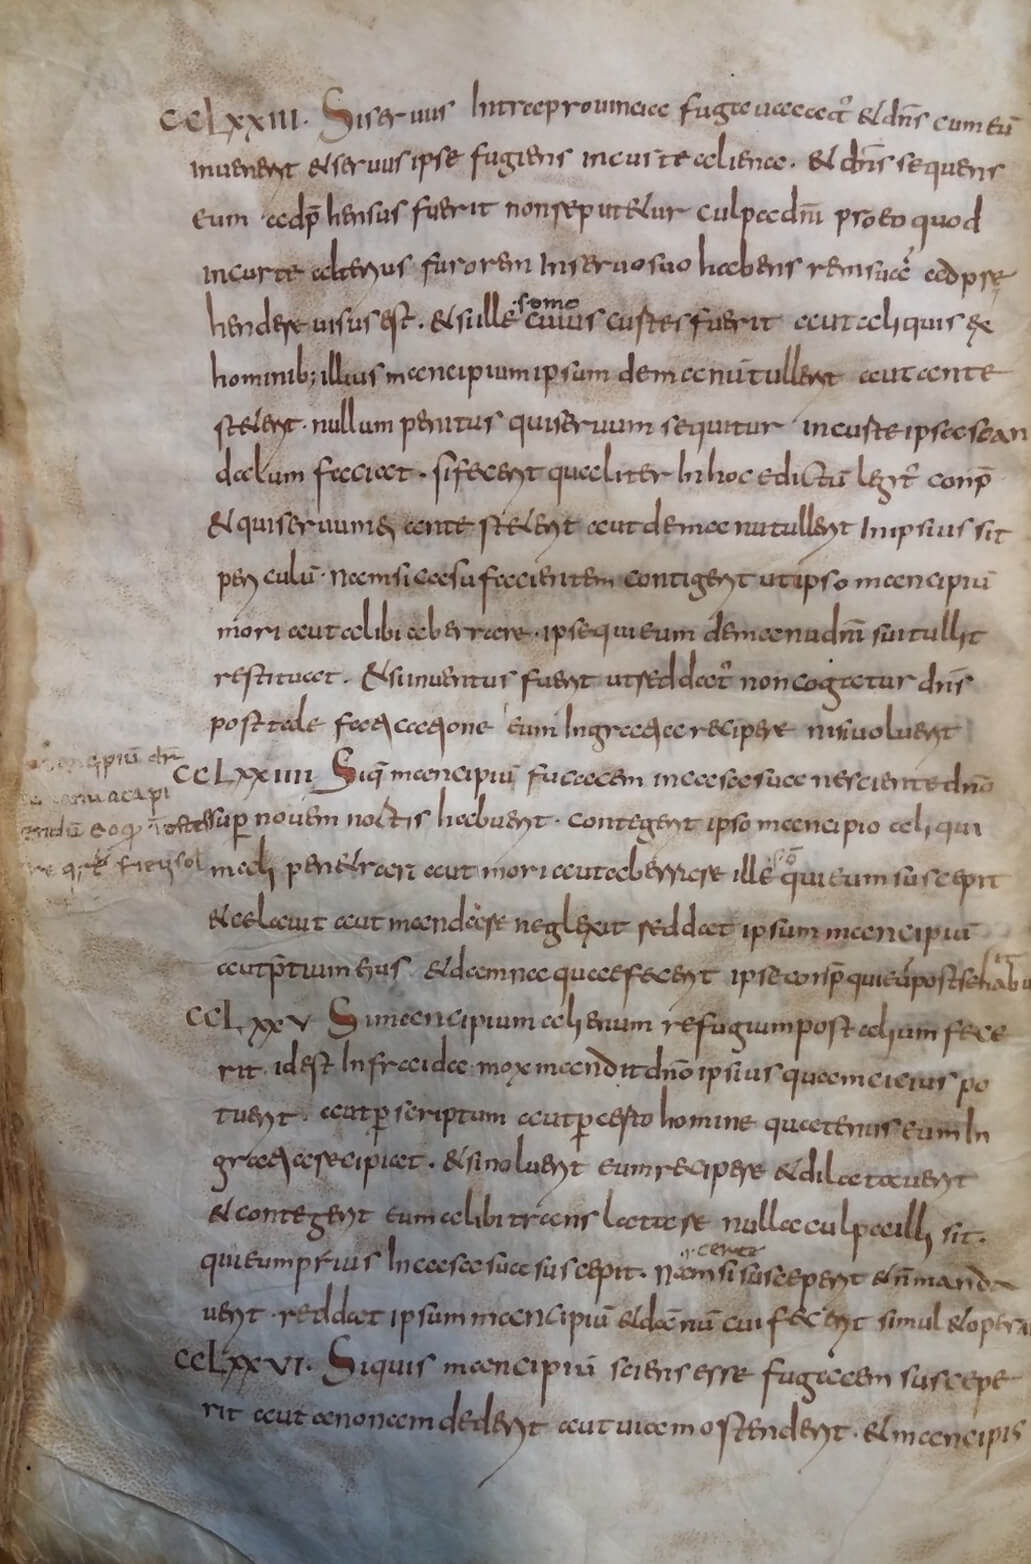 CCLXXIII. Si servus Intra provincia fugta vacat̉ & dn̄s cum eū
invenerit & servus ipse fugiens in curte aliena. & dn̄s sequens
eum adp̄hensus fuerit non reputetur culpa dn̄i pro eo quod
in curte alterius furorem In servo suo habens rem suā adpre
hendere visus est. & si ille cuius curtes fuerit aut aliquis ex
somo
hominib; illius mancipium ipsum de manū tullerit aut ante
steterit. nullum penitus qui servum sequitur in curte ipsa scan
dalum faciat. si fecerit qualiter In hoc edictū legit̉ conp̄
& qui servum ei ante steterit aut de manu tullerit In ipsius sit
periculū. nam si casu facientem contigerit ut ipso mancipiū
mori aut alibi aberrare. ipse qui eum de manu dn̄i sui tullit
restituat. & si inventus fuerit ut reddat̉ non cogatur dn̄s
post tale facta actione eum In gratia recipere nisi voluerit
CCLXXIIII Siq̄ mancipiū fugacem in casa sua nesciente dn̄o
super novem noctis habuerit. contegerit ipso mancipio aliqui
mali penetrari aut mori aut aberrare ille qui eum suscepit
& celavit aut mandare neglexit reddat ipsum mancipiū
aut p̄tium eius & damna quae fecerit ipse conp̄ qui eū post se habu
CCLXXV Si mancipium alienum refugium post alium fece
rit id est In fraida mox mandit dn̄o ipsius quam cicius po
tuerit. aut p̱ scriptum aut p̱ certo homine quatenus eum In
gratia recipiat. & si noluerit eum recipere & dilataverit
& contegerit eum alibi translatare nulla culpa illi sit.
qui eum prius In casa sua suscepit. nam si susceperit & n̄ manda
verit reddat ipsum mancipiū & damnū cui fecerit simul & opera
CCLXXVI. Si quis mancipiū sciens esse fugacem suscepe
rit aut annonam dederit aut viam ostenderit. & mancipis